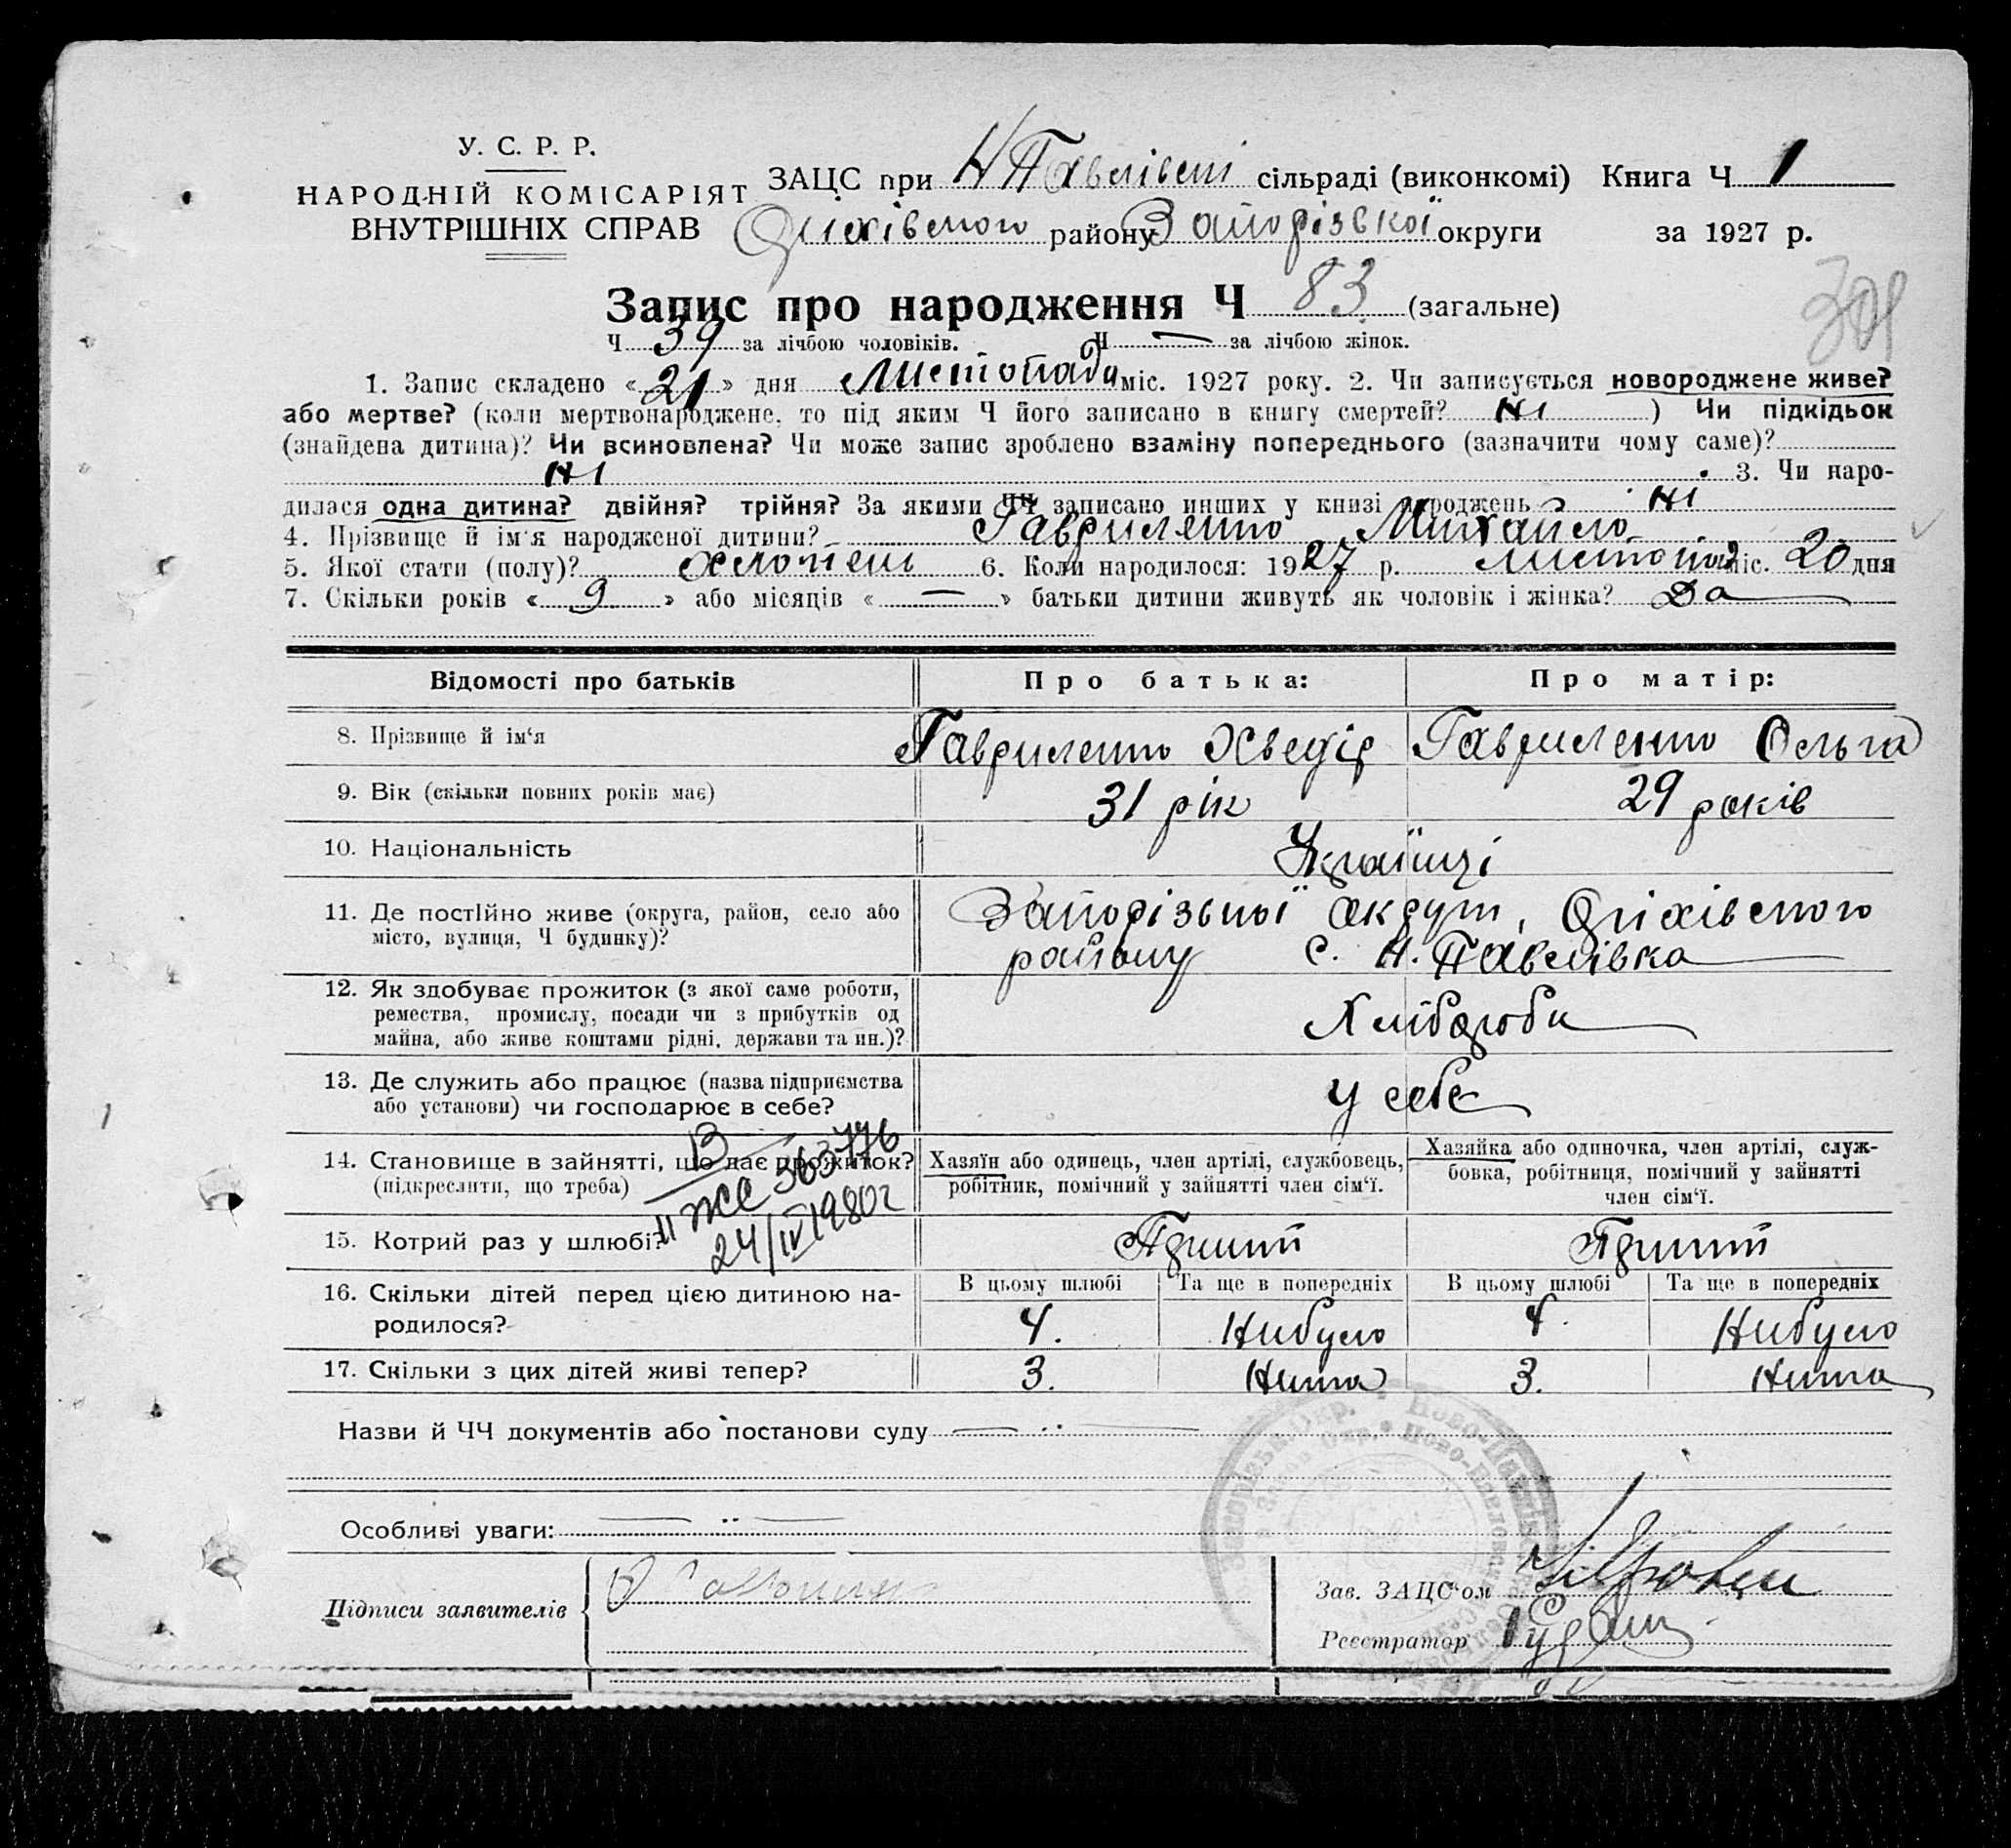 У. С. Р. Р.
НАРОДНІЙ КОМІСАРІЯТ
ВНУТРІШНІХ СПРАВ
ЗАЦС при Н Павлівскі сільраді (виконкомі) Книга Ч 1
Оріхівського району Запорізької округи за 1927 р.
309
Запис про народження Ч 83 (загальне)
Ч 39 за лічбою чоловіків. Ч — за лічбою жінок.
1. Запис складено « 21 » дня Листопада міс. 1927 року. 2. Чи записується новороджене живе?
або мертве? (коли мертвонароджене, то під яким Ч його записано в книгу смертей? Ні ) Чи підкідьок
(знайдена дитина)? Чи всиновлена? Чи може запис зроблено взаміну попереднього (зазначити чому саме)?
Ні 3. Чи наро-
дилася одна дитина? двійня? трійня? За якими ЧЧ записано инших у книзі народжень Ні
4. Прізвище й ім'я народженої дитини? Гавриленко Михайло
5. Якої стати (полу)? хлопець 6. Коли народилося: 1927 р. листопад міс. 20 дня
7. Скільки років « 9 » або місяців « — » батьки дитини живуть як чоловік і жінка? Да
Відомості про батьків Про батька: Про матір:
8. Прізвище й ім'я Гавриленко Хведір Гавриленко Ольга
9. Вік (скільки повних років має) 31 рік 29 років
10. Національність Українці
11. Де постійно живе (округа, район, село або Запорізької округи, Оріхівського
місто, вулиця, Ч будинку)? району с. Н. Павлівка
12. Як здобуває прожиток (з якої саме роботи,
ремества, промислу, посади чи з прибутків од Хлібороби
майна, або живе коштами рідні, держави та ин.)?
13. Де служить або працює (назва підприємства у себе
або установи) чи господарює в себе?
14. Становище в зайнятті, що дає прожиток? Хазяїн або одинець, член артілі, службовець, Хазяйка або одиночка, член артілі, служ-
(підкреслити, що треба) робітник, помічний у зайнятті член сім'ї. бовка, робітниця, помічний у зайнятті
член сім'ї.
ЖС 363776
24/IV 1980г
15. Котрий раз у шлюбі? Перший Перший
16. Скільки дітей перед цією дитиною на- В цьому шлюбі Та ще в попередніх В цьому шлюбі Та ще в попередніх
родилося? 4. Нибуло 4. Нибуло
17. Скільки з цих дітей живі тепер? 3. Нима 3. Нима
Назви й ЧЧ документів або постанови суду
Особливі уваги:
Підписи заявителів
Зав. ЗАЦС'ом
Реєстратор